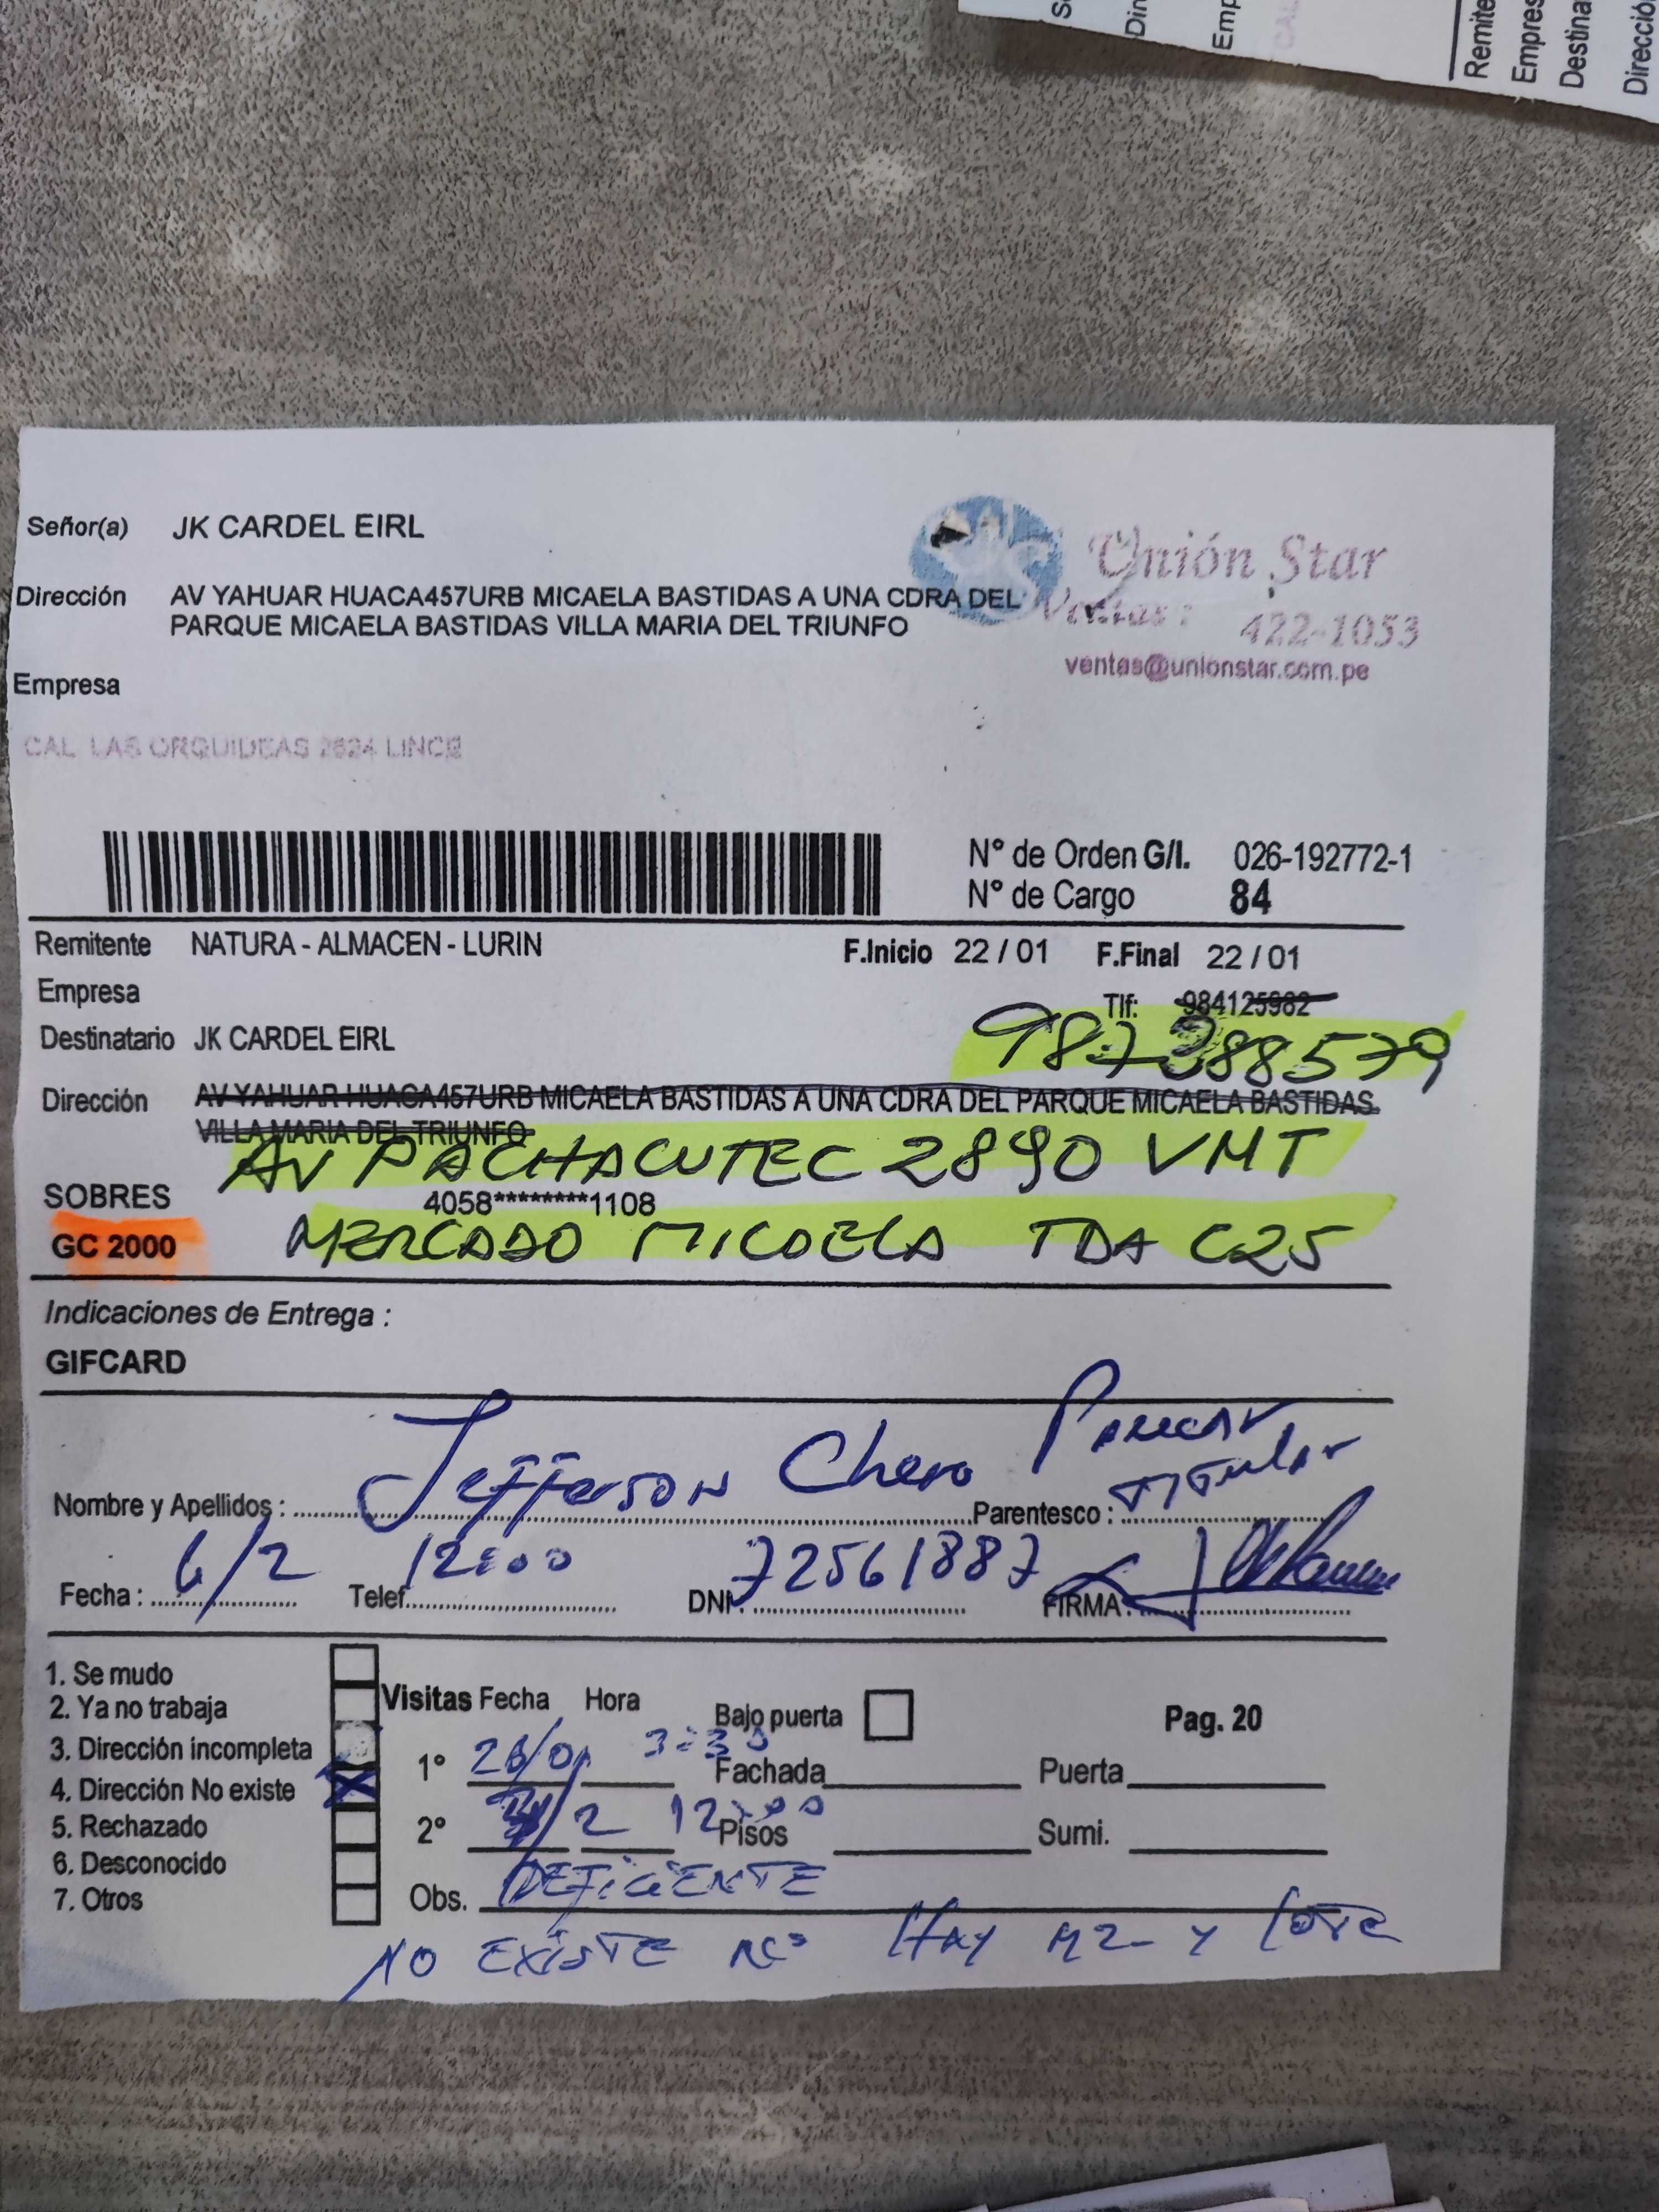 Remite
Empres
Destina
Dirección
Din
Emp
CAL
Señor(a) JK CARDEL EIRL
Dirección AV YAHUAR HUACA457URB MICAELA BASTIDAS A UNA CDRA DEL
PARQUE MICAELA BASTIDAS VILLA MARIA DEL TRIUNFO
Unión Star
Ventas: 422-1053
ventas@unionstar.com.pe
Empresa
CAL LAS ORQUIDEAS 2624 LINCE
N° de Orden G/I. 026-192772-1
N° de Cargo 84
Remitente NATURA - ALMACEN - LURIN F.Inicio 22 / 01 F.Final 22 / 01
Empresa Tlf: 984125982
987388579
Destinatario JK CARDEL EIRL
Dirección AV YAHUAR HUACA457URB MICAELA BASTIDAS A UNA CDRA DEL PARQUE MICAELA BASTIDAS
VILLA MARIA DEL TRIUNFO
AV PACHACUTEC 2890 VMT
SOBRES 4058********1108
GC 2000 MERCADO MICAELA TDA C25
Indicaciones de Entrega :
GIFCARD
Nombre y Apellidos : Jefferson Chero Parentesco : Titular
Fecha : 6/2 Telef. 12:00 DNI : 72561887 FIRMA :
1. Se mudo
2. Ya no trabaja
3. Dirección incompleta
4. Dirección No existe X
5. Rechazado
6. Desconocido
7. Otros
Visitas Fecha Hora Bajo puerta Pag. 20
1° 26/01 3:30 Fachada Puerta
2° /2 12:00 Pisos Sumi.
Obs. DEFICIENTE
NO EXISTE N° HAY MZ- Y LOTE